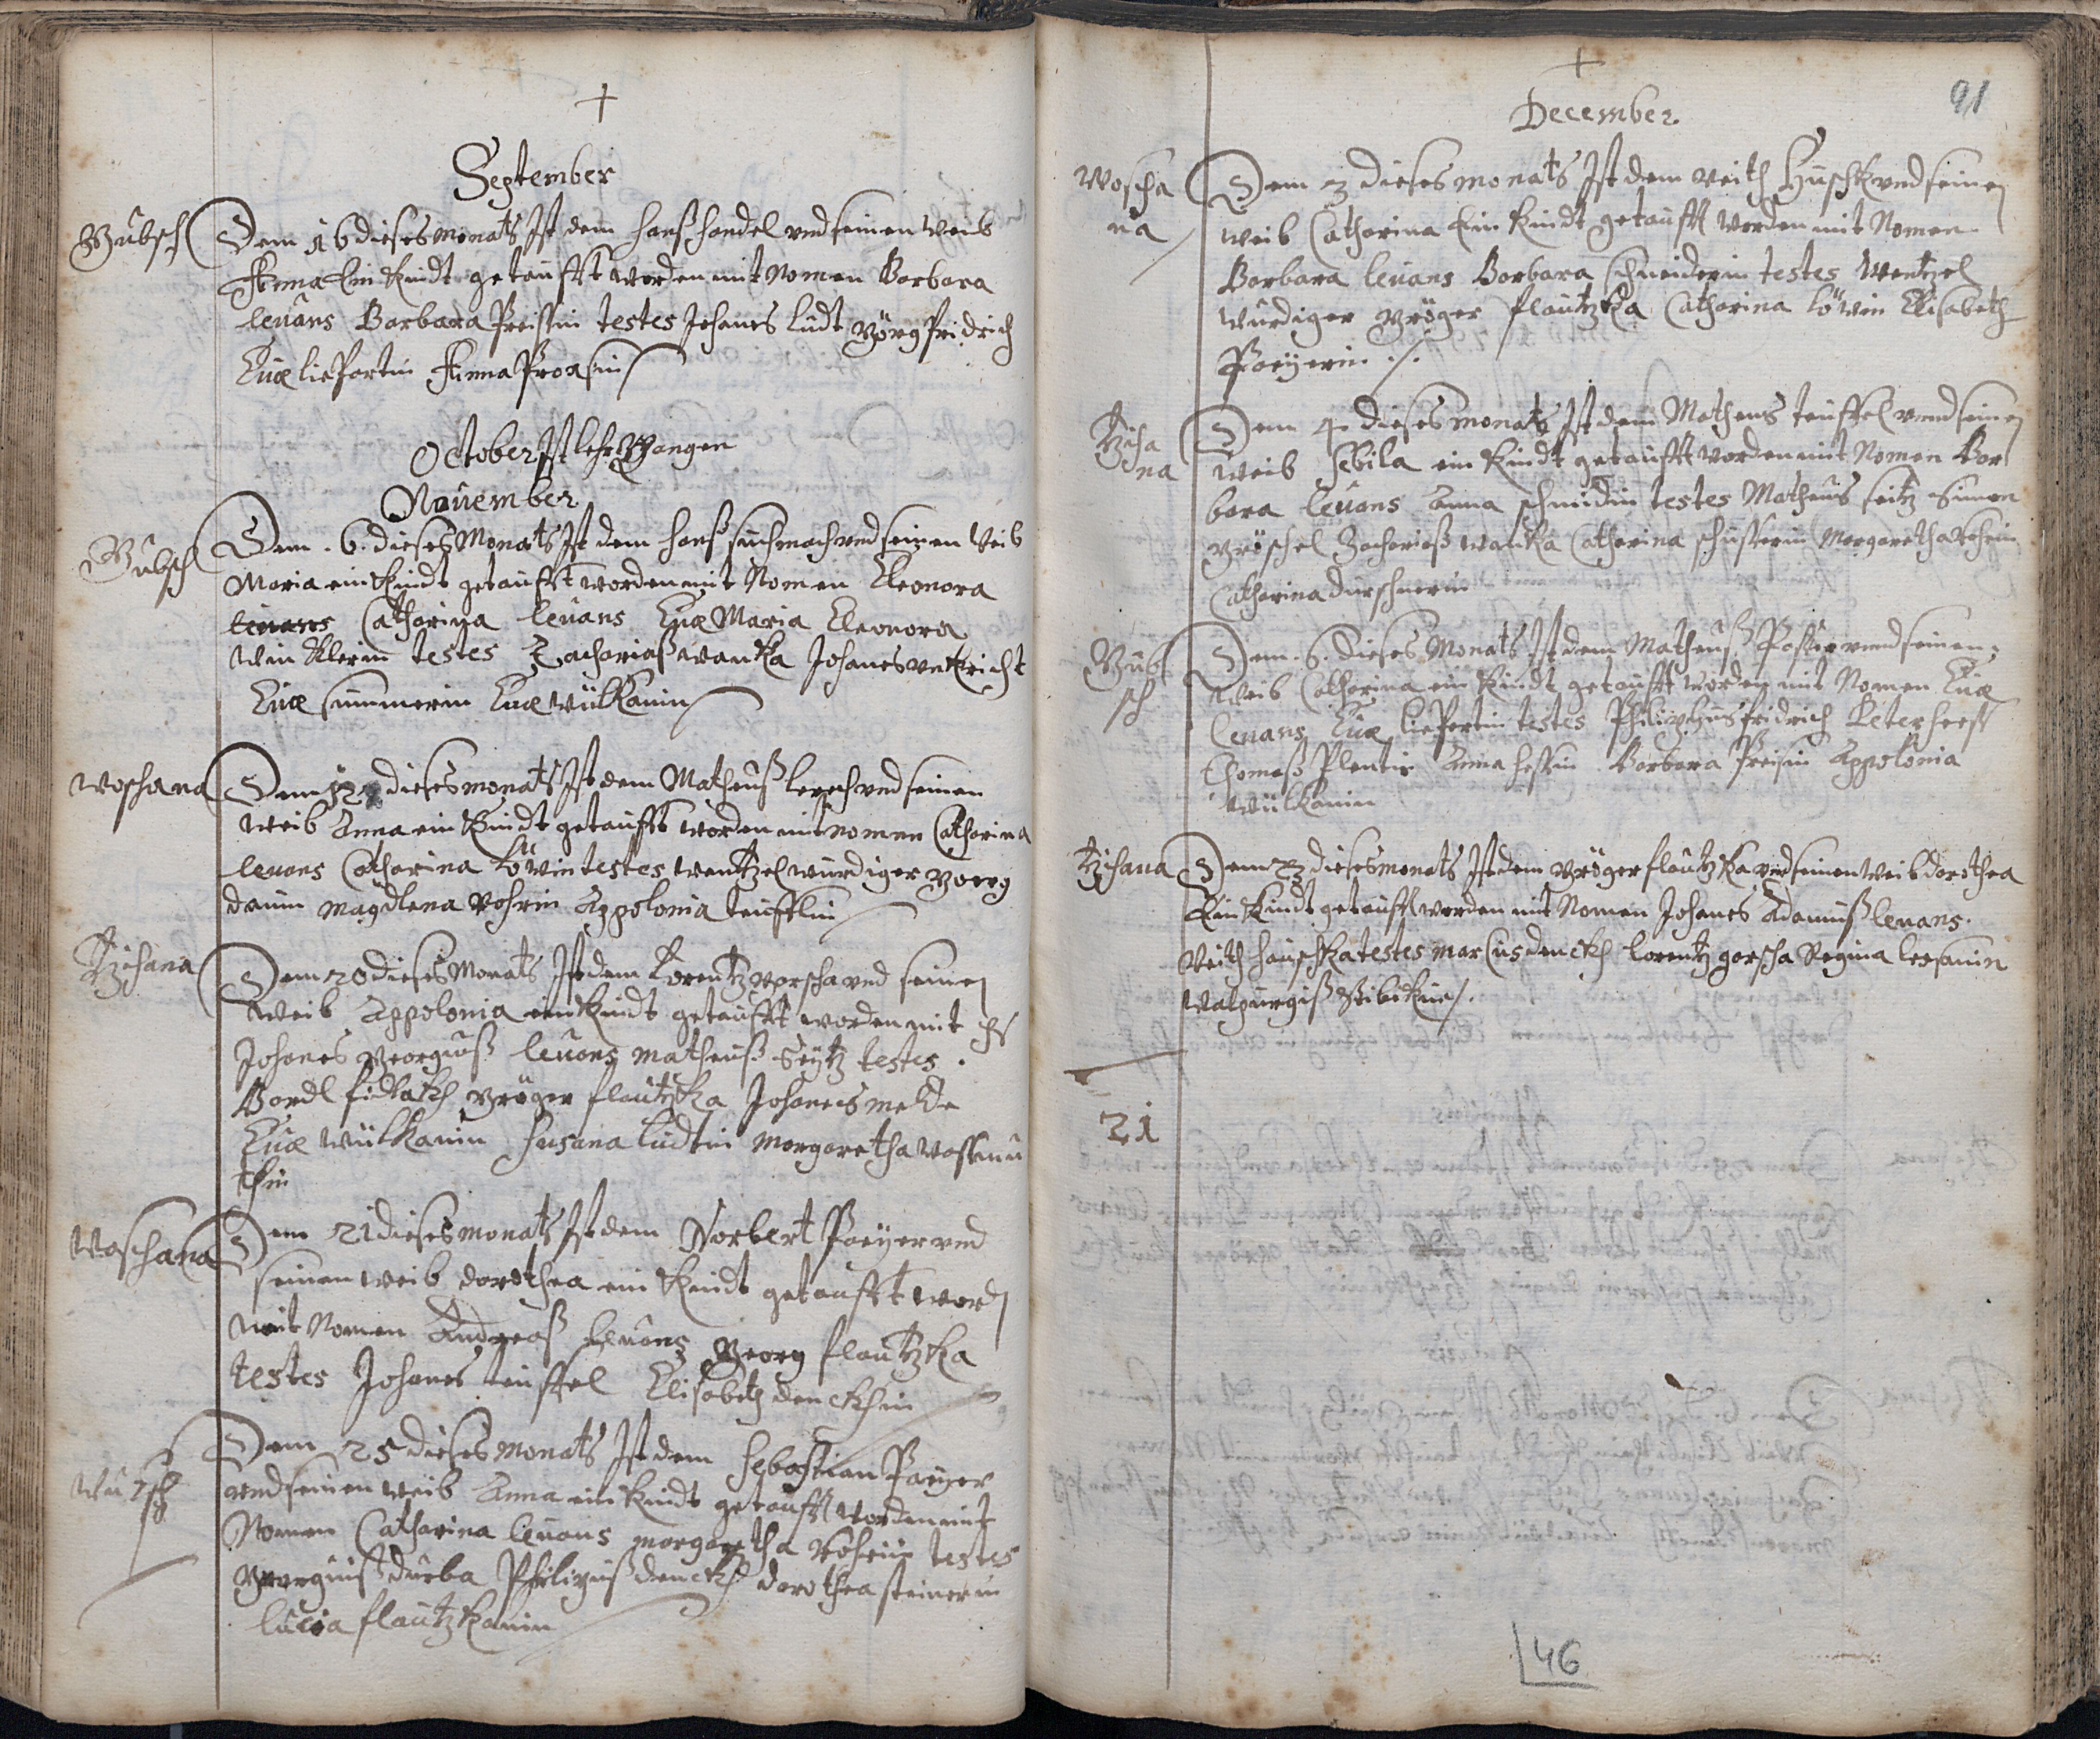 September
Gubsch
Dem 16 dieses monats Ist dem hanß handel vnd seinen weib
Anna Ein Kindt getaufft worden mit nomen Barbara
levans Barbara Preissin testes Johanes ludt Görg fridrich
Euæ lieFartin Anna
October Ist lehr gangen
Nouember
Gubsch
Dem . 6. dieses Monats Ist dem hanß vnd seinen Veib
Maria ein Kindt getaufft worden mit Nomen Eleonora
Catharina levans Euæ Maria Eleonora
Winklerin testes Zachariaß wanka Johanes
Euæ summerin Euæ Wülkanin
Woschana
Dem dieses monats Ist dem Matheuß lerch vnd seinen
weib Anna ein Kindt getaufft worden mit nomen Catharina
levans Catharina löwin testes wentzel würdiger Georg
daum magdlena Rohrin Appolonia teufflin
Tzschana
Dem 20 dieses Monats Ist dem Lorentz gorscha vnd seinen
Weib Appolonia ein Kindt getaufft worden mit
Johanes Georguß levans matheuß Seytz testes .
Gröger flautzka Johanes
Euæ Wülkanin Susana ludtin Morgaretha
thin
Woschana
Dem 21 dieses monats Ist dem Norbert Paeyer vnd
seinen weib dorothea ein Kindt getaufft word
mit Nomen Andreaß levans Georg flautzka
testes Johanes teuffel Elisabeth denckhin
Dem 25 dieses monats Ist dem Sebastian Payer
vnd seinen weib Anna ein Kindt getaufft worden mit
Nomen Catharina levans morgaretha Rohrin testes
Georguß durba Philipuß denckh dorothea steinerin
lucia flautzkanin
91
December
Woscha
na
Dem 3 dieses monats Ist dem veith Huschk vnd seinen
weib Catharina Ein Kindt getaufft worden mit Nomen
Barbara levans Barbara schneiderin testes Wentzel
Würdiger Gröger flautzka Catharina löwin Elisabeth
Paeyerin ./.
Tzscha
na
Dem 4 dieses monats Ist dem Matheus teuffel vnnd seinen
weib Sebila ein Kindt getaufft worden mit Nomen Bar
bara levans Anna schmidin testes Matheus seitz Simon
Gröschel Zachariaß wanka Catharina schusterin Morgaretha Rohrin
Catharina durschnerin
Gub
sch
Dem . 6. dieses Monats Ist dem Matheuß vnnd seinen
Weib Catharina ein Kindt getaufft worden mit Nomen Euæ
levans Euæ lieFertin testes Philiphus fridrich Peter
thomaß Anna Barbara Preisin Appolonia
Wülkanin
Tzschana
Dem 23 dieses monats Ist dem Gröger flautzka vnd seinen Weib dorothea
Ein Kindt getaufft worden mit Nomen Johanes Adamuß levans.
Veith hauschka testes marcus denckh lorentz gorscha Regina
Walpurgiß
21
46